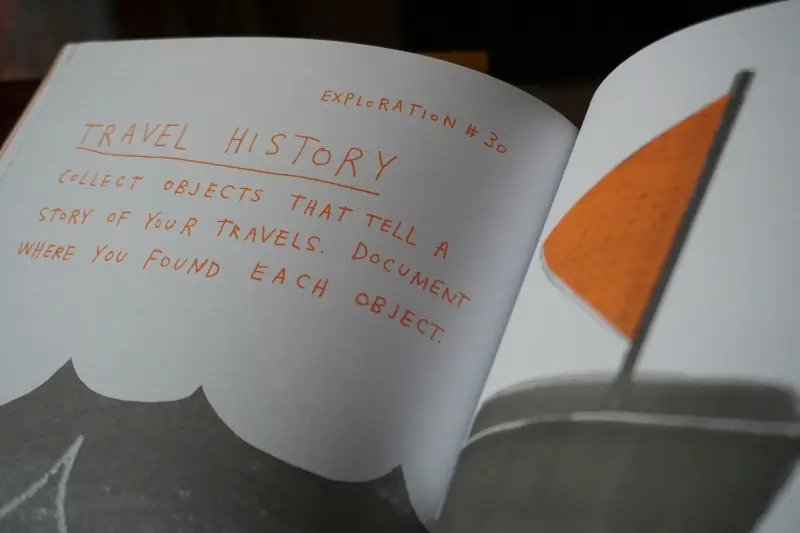 EXPLORATION #30
TRAVEL HISTORY
COLLECT OBJECTS THAT TELL A
STORY OF YOUR TRAVELS. DOCUMENT
WHERE YOU FOUND EACH OBJECT.